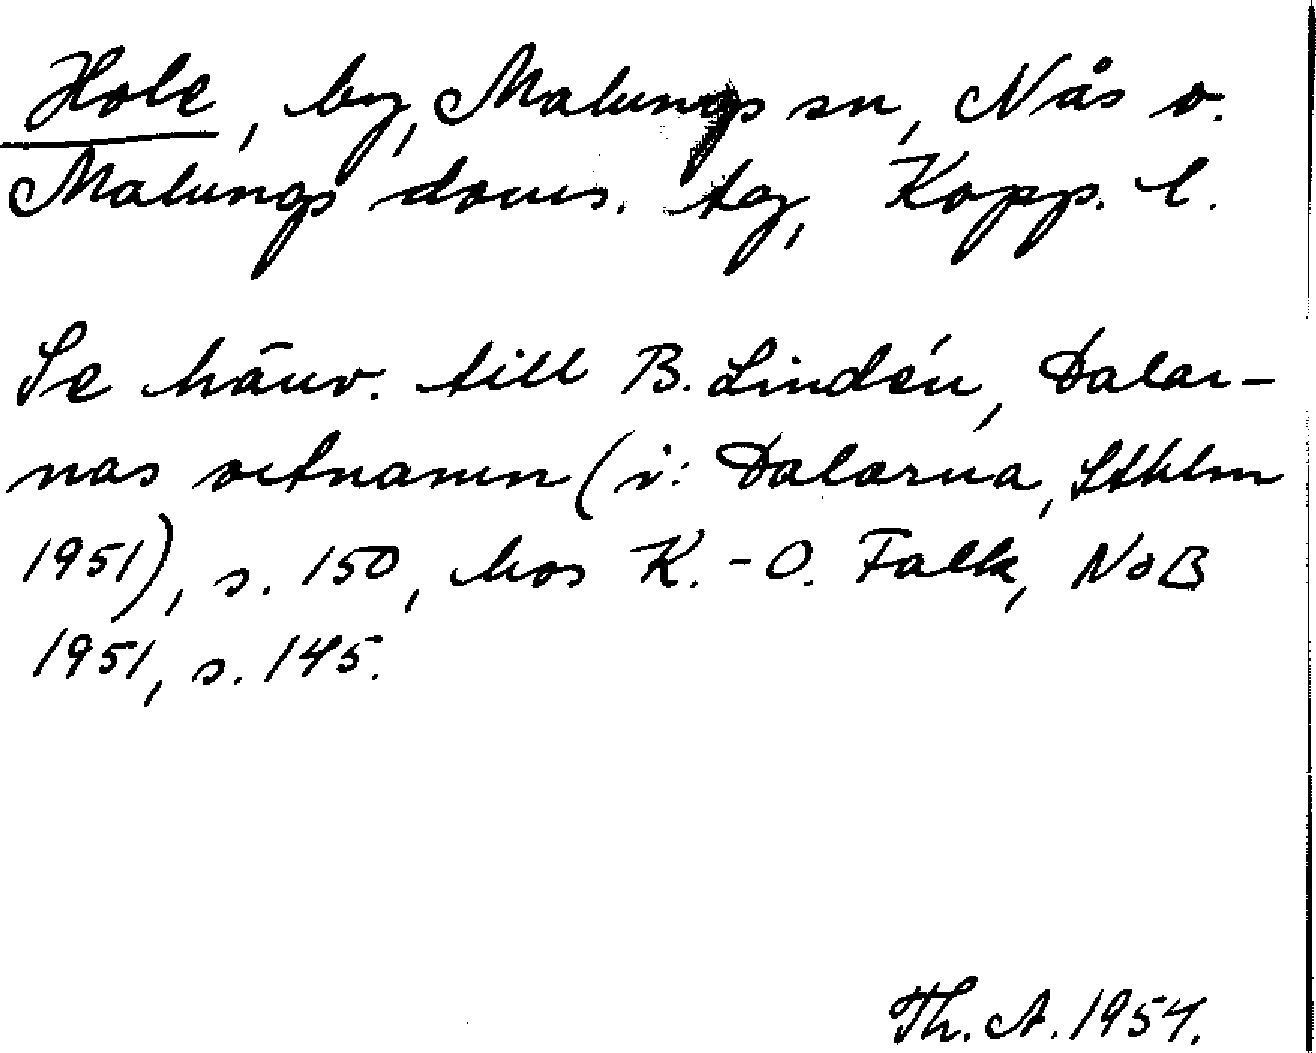 Hole, by, Malungs sn, Nås o.
Malungs doms. tg, Kopp. l.
Se hänv. till B. Lindén, Dalar-
nas ortnamn (i: Dalarna, Sthlm
1951), s. 150, hos K.-O. Falk, NoB
1951, s. 145.
Th. A. 1954.